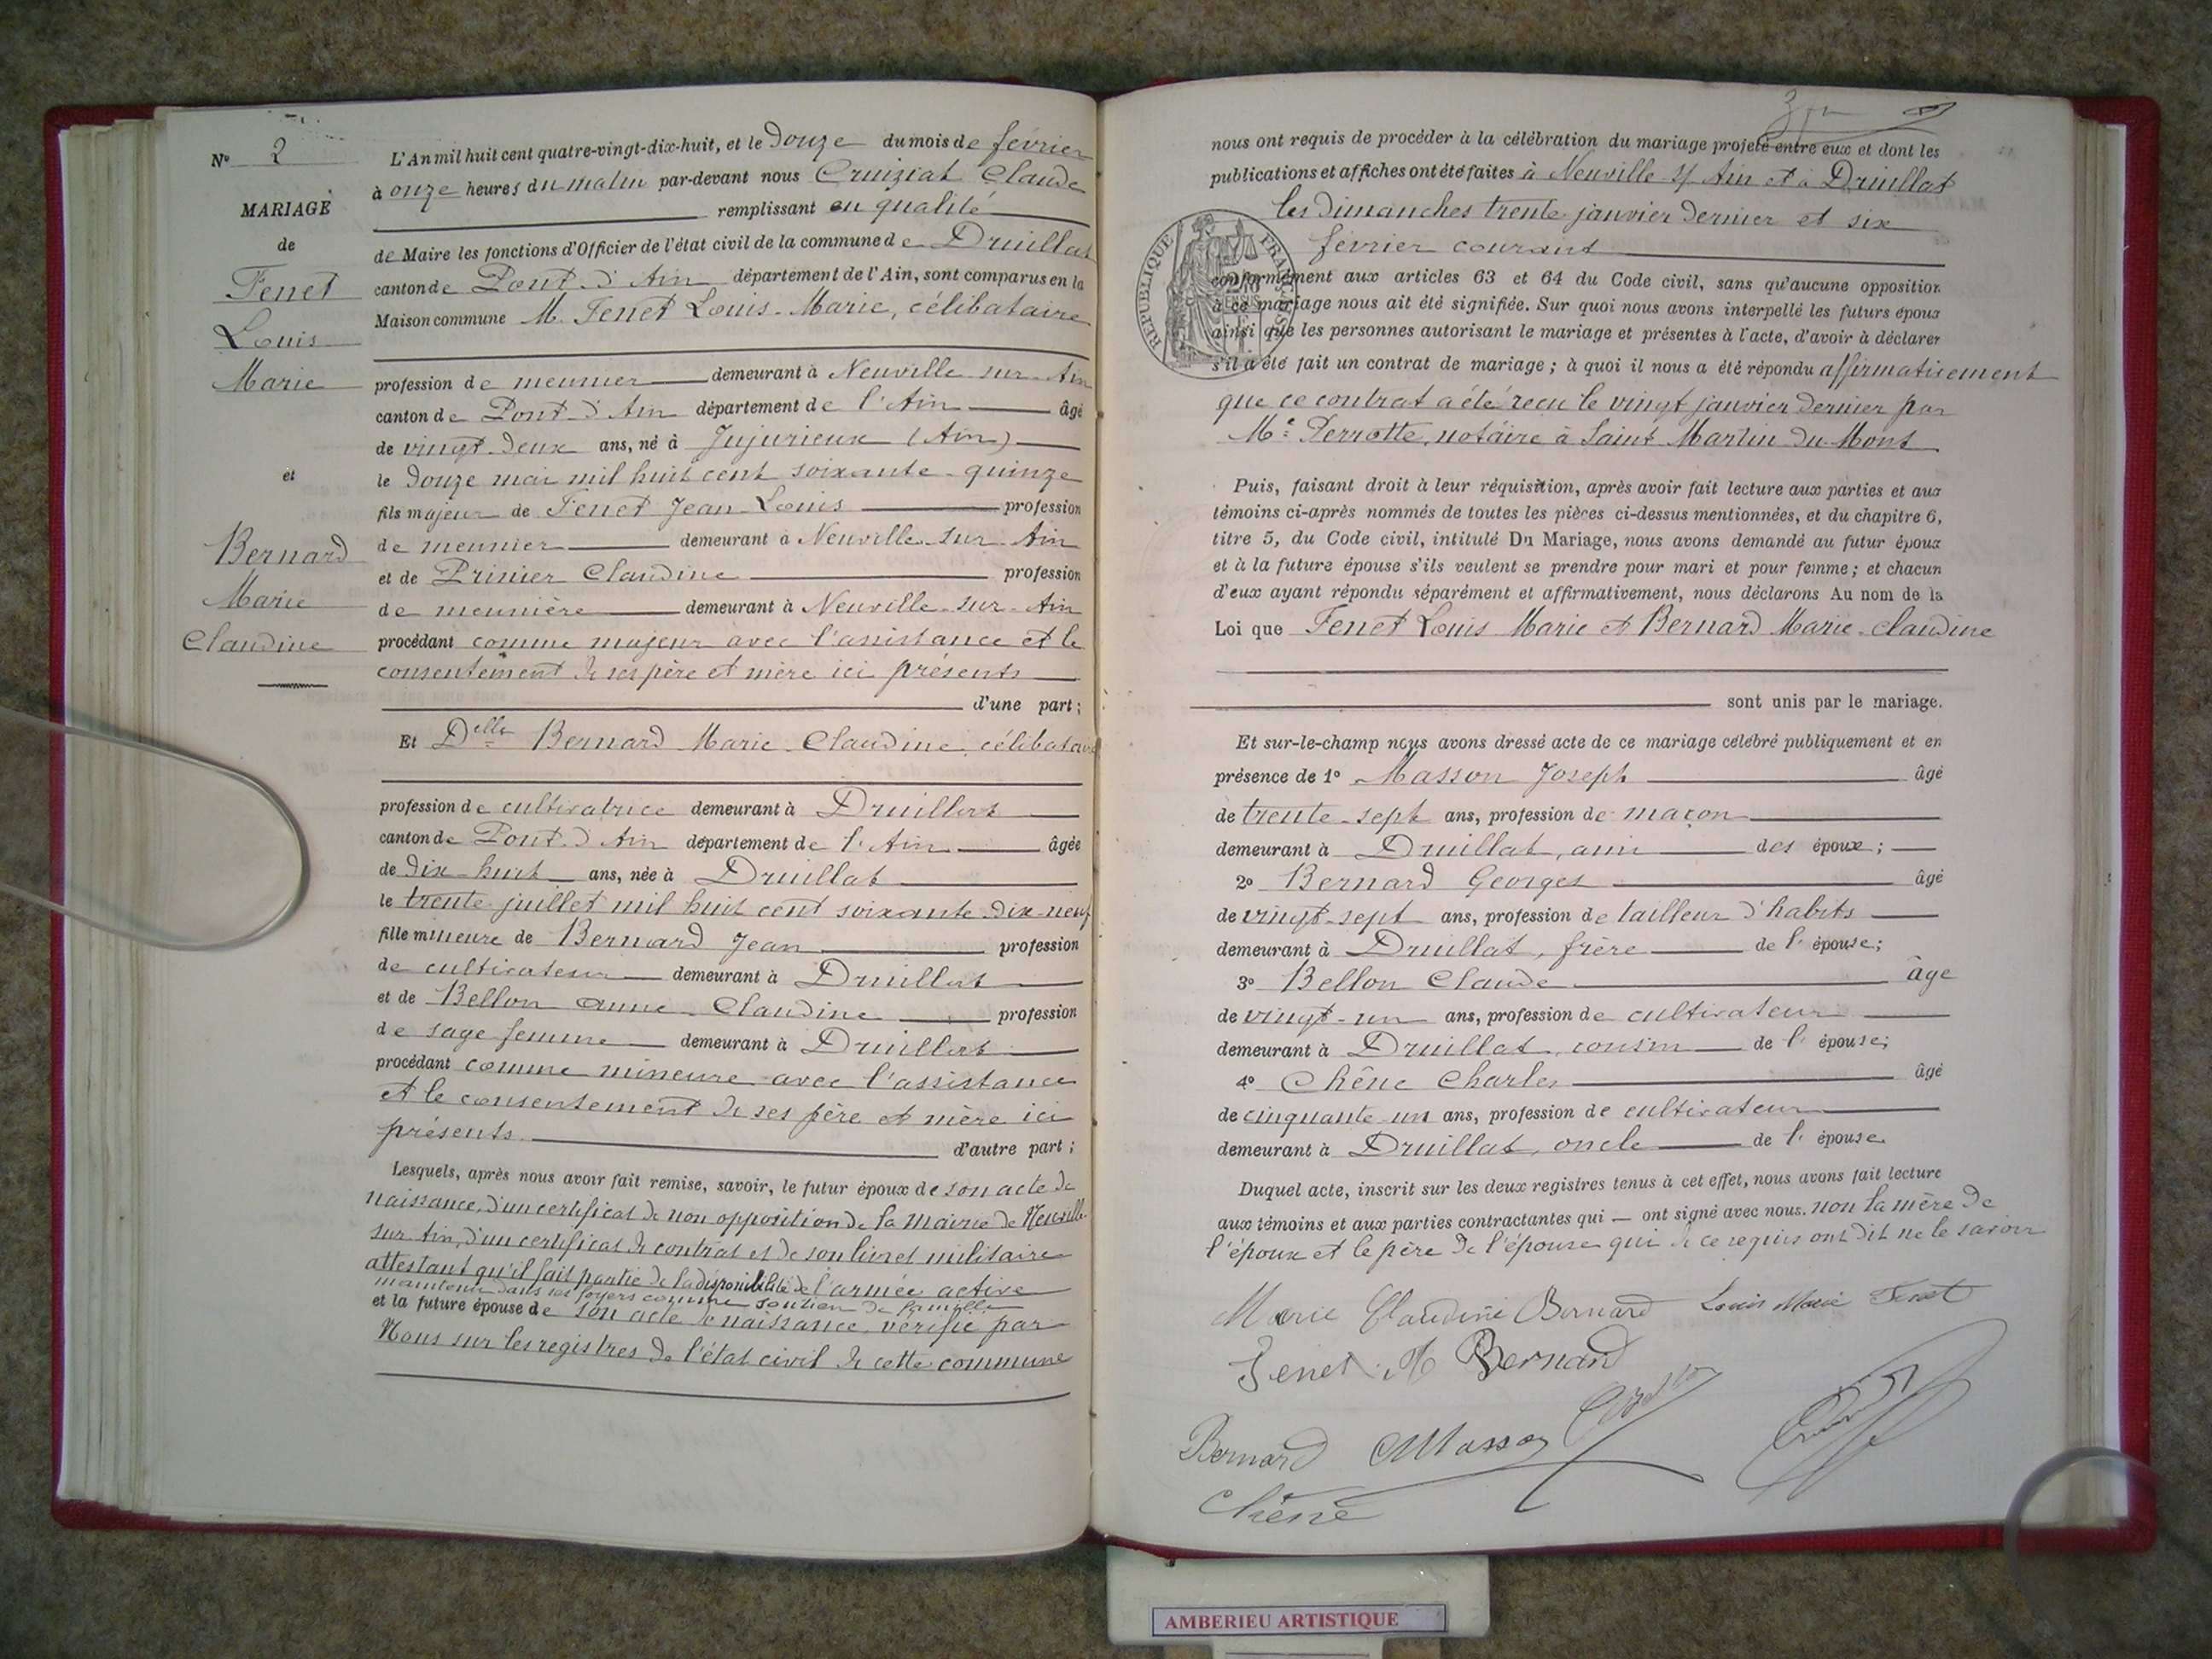 N° 2
MARIAGE
de
Fenet
Louis
Marie
et
Bernard
Marie
Claudine
L'An mil huit cent quatre-vingt-dix-huit, et le douze du mois de février
à onze heures du matin par-devant nous Cruiziat Claude
remplissant en qualité
de Maire les fonctions d'Officier de l'état civil de la commune de Druillat
canton de Pont d'Ain département de l'Ain, sont comparus en la
Maison commune M. Fenet Louis-Marie, célibataire
profession de meunier demeurant à Neuville-sur-Ain
canton de Pont d'Ain département de l'Ain âgé
de vingt-deux ans, né à Jujurieux (Ain)
le douze mai mil huit cent soixante-quinze
fils majeur de Fenet Jean-Louis profession
de meunier demeurant à Neuville-sur-Ain
et de Prinier Claudine profession
de meunière demeurant à Neuville-sur-Ain
procédant comme majeur avec l'assistance et le
consentement de ses père et mère ici présents
d'une part;
Et Delle Bernard Marie-Claudine, célibataire
profession de cultivatrice demeurant à Druillat
canton de Pont d'Ain département de l'Ain âgée
de dix-huit ans, née à Druillat
le trente juillet mil huit cent soixante-dix-neuf
fille mineure de Bernard Jean profession
de cultivateur demeurant à Druillat
et de Bellon Anne-Claudine profession
de sage femme demeurant à Druillat
procédant comme mineure avec l'assistance
et le consentement de ses père et mère ici
présents d'autre part;
Lesquels, après nous avoir fait remise, savoir, le futur époux de son acte de
naissance, d'un certificat de non opposition de la Mairie de Neuville
sur Ain, d'un certificat de contrat et de son livret militaire
attestant qu'il fait partie de la disponibilité de l'armée active
maintenu dans ses foyers comme soutien de famille
et la future épouse de son acte de naissance vérifié par
Nous sur les registres de l'état civil de cette commune
nous ont requis de procéder à la célébration du mariage projeté entre eux et dont les
publications et affiches ont été faites à Neuville s/ Ain et à Druillat
les dimanches trente janvier dernier et six
février courant
REPUBLIQUE FRANÇAISE
conformément aux articles 63 et 64 du Code civil, sans qu'aucune opposition
à ce mariage nous ait été signifiée. Sur quoi nous avons interpellé les futurs époux
ainsi que les personnes autorisant le mariage et présentes à l'acte, d'avoir à déclarer
s'il a été fait un contrat de mariage; à quoi il nous a été répondu affirmativement
que ce contrat a été reçu le vingt janvier dernier par
Me Perrotte, notaire à Saint Martin du Mont
Puis, faisant droit à leur réquisition, après avoir fait lecture aux parties et aux
témoins ci-après nommés de toutes les pièces ci-dessus mentionnées, et du chapitre 6,
titre 5, du Code civil, intitulé Du Mariage, nous avons demandé au futur époux
et à la future épouse s'ils veulent se prendre pour mari et pour femme; et chacun
d'eux ayant répondu séparément et affirmativement, nous déclarons Au nom de la
Loi que Fenet Louis Marie et Bernard Marie-Claudine
sont unis par le mariage.
Et sur-le-champ nous avons dressé acte de ce mariage célébré publiquement et en
présence de 1° Masson Joseph âgé
de trente-sept ans, profession de maçon
demeurant à Druillat, ami des époux;
2° Bernard Georges âgé
de vingt-sept ans, profession de tailleur d'habits
demeurant à Druillat, frère de l'épouse;
3° Bellon Claude âgé
de vingt-un ans, profession de cultivateur
demeurant à Druillat, cousin de l'épouse;
4° Chêne Charles âgé
de cinquante-un ans, profession de cultivateur
demeurant à Druillat, oncle de l'épouse.
Duquel acte, inscrit sur les deux registres tenus à cet effet, nous avons fait lecture
aux témoins et aux parties contractantes qui — ont signé avec nous. non la mère de
l'époux et le père de l'épouse qui de ce requis ont dit ne le savoir
Marie Claudine Bernard Louis Marie Fenet
Fenet Bernard
Bernard Masson
Chêne
AMBERIEU ARTISTIQUE